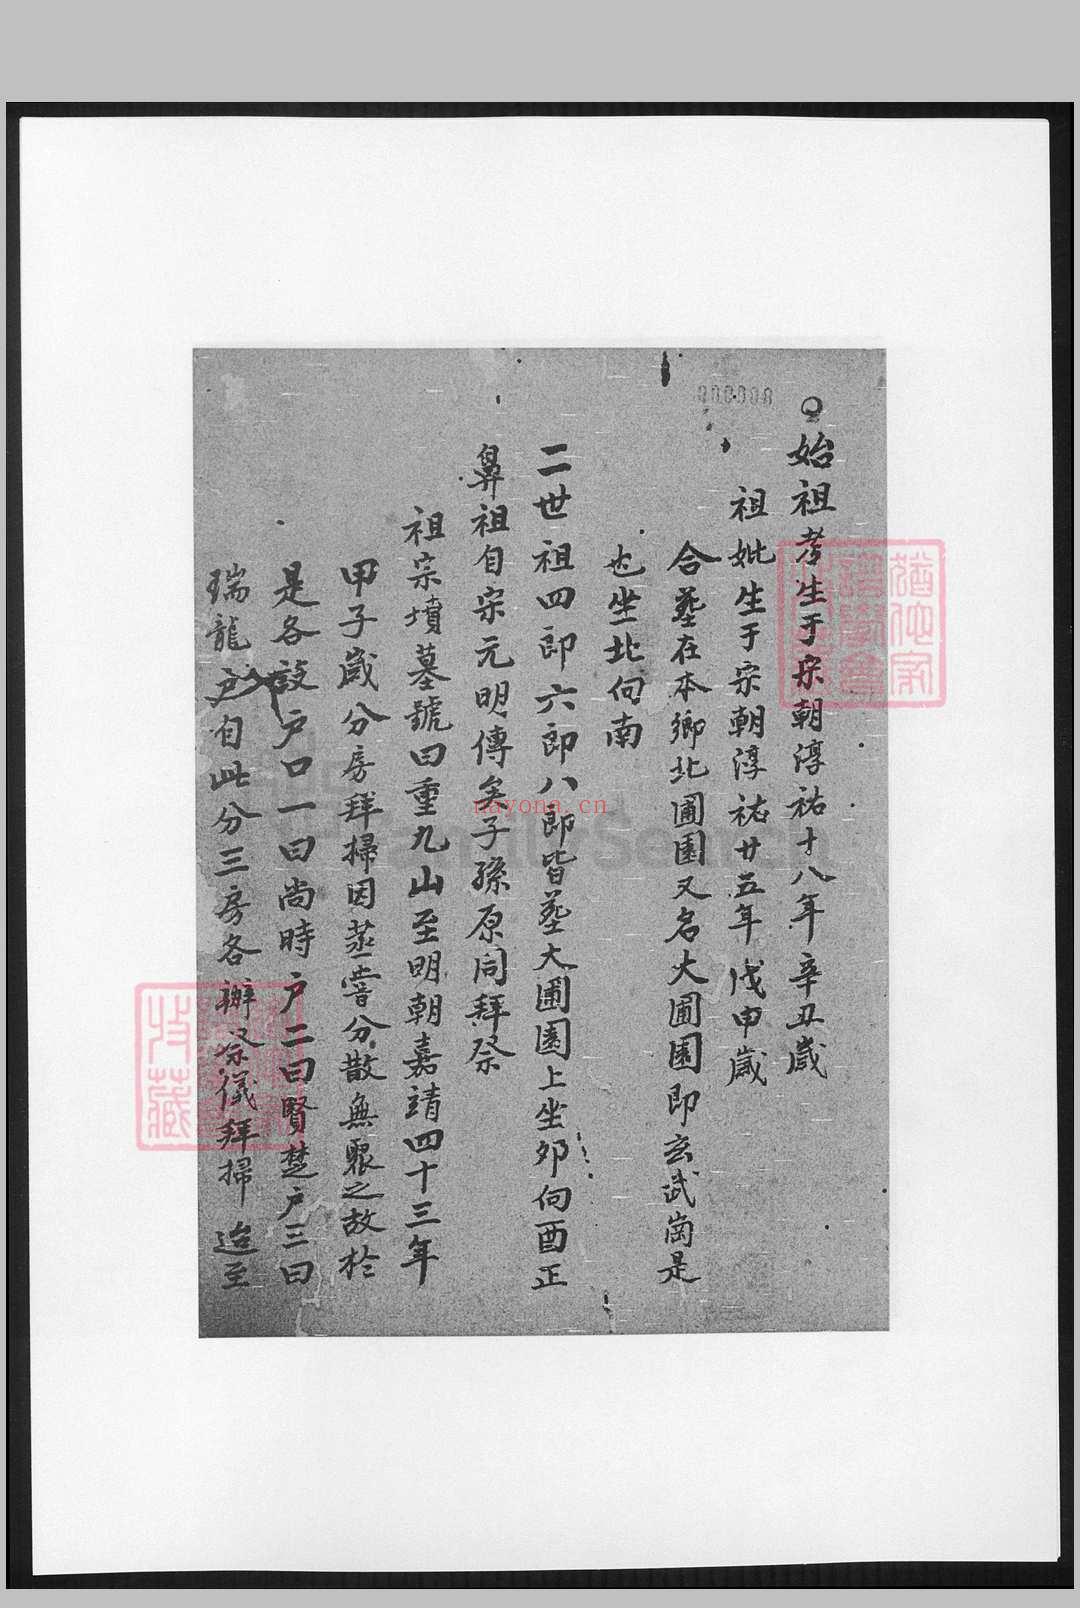 始祖考生于宋朝淳祐十八年辛丑歲
祖妣生于宋朝淳祐廿五年戊申歲
合葬在本鄉北圃園又名大圃園即玄武崗是
也坐北向南
二世祖四郎六郎八郎皆葬大圃園上坐夘向酉正
鼻祖自宗元明傳矣子孫原同拜祭
祖宗墳墓號曰重九山至明朝嘉靖四十三年
甲子歲分房拜掃因蒸嘗分散無眾之故於
是各設户口一曰尚時户二曰賢楚户三曰
瑞龍户自此分三房各辦祭儀拜掃 迨至
nayona.cn
FamilySearch